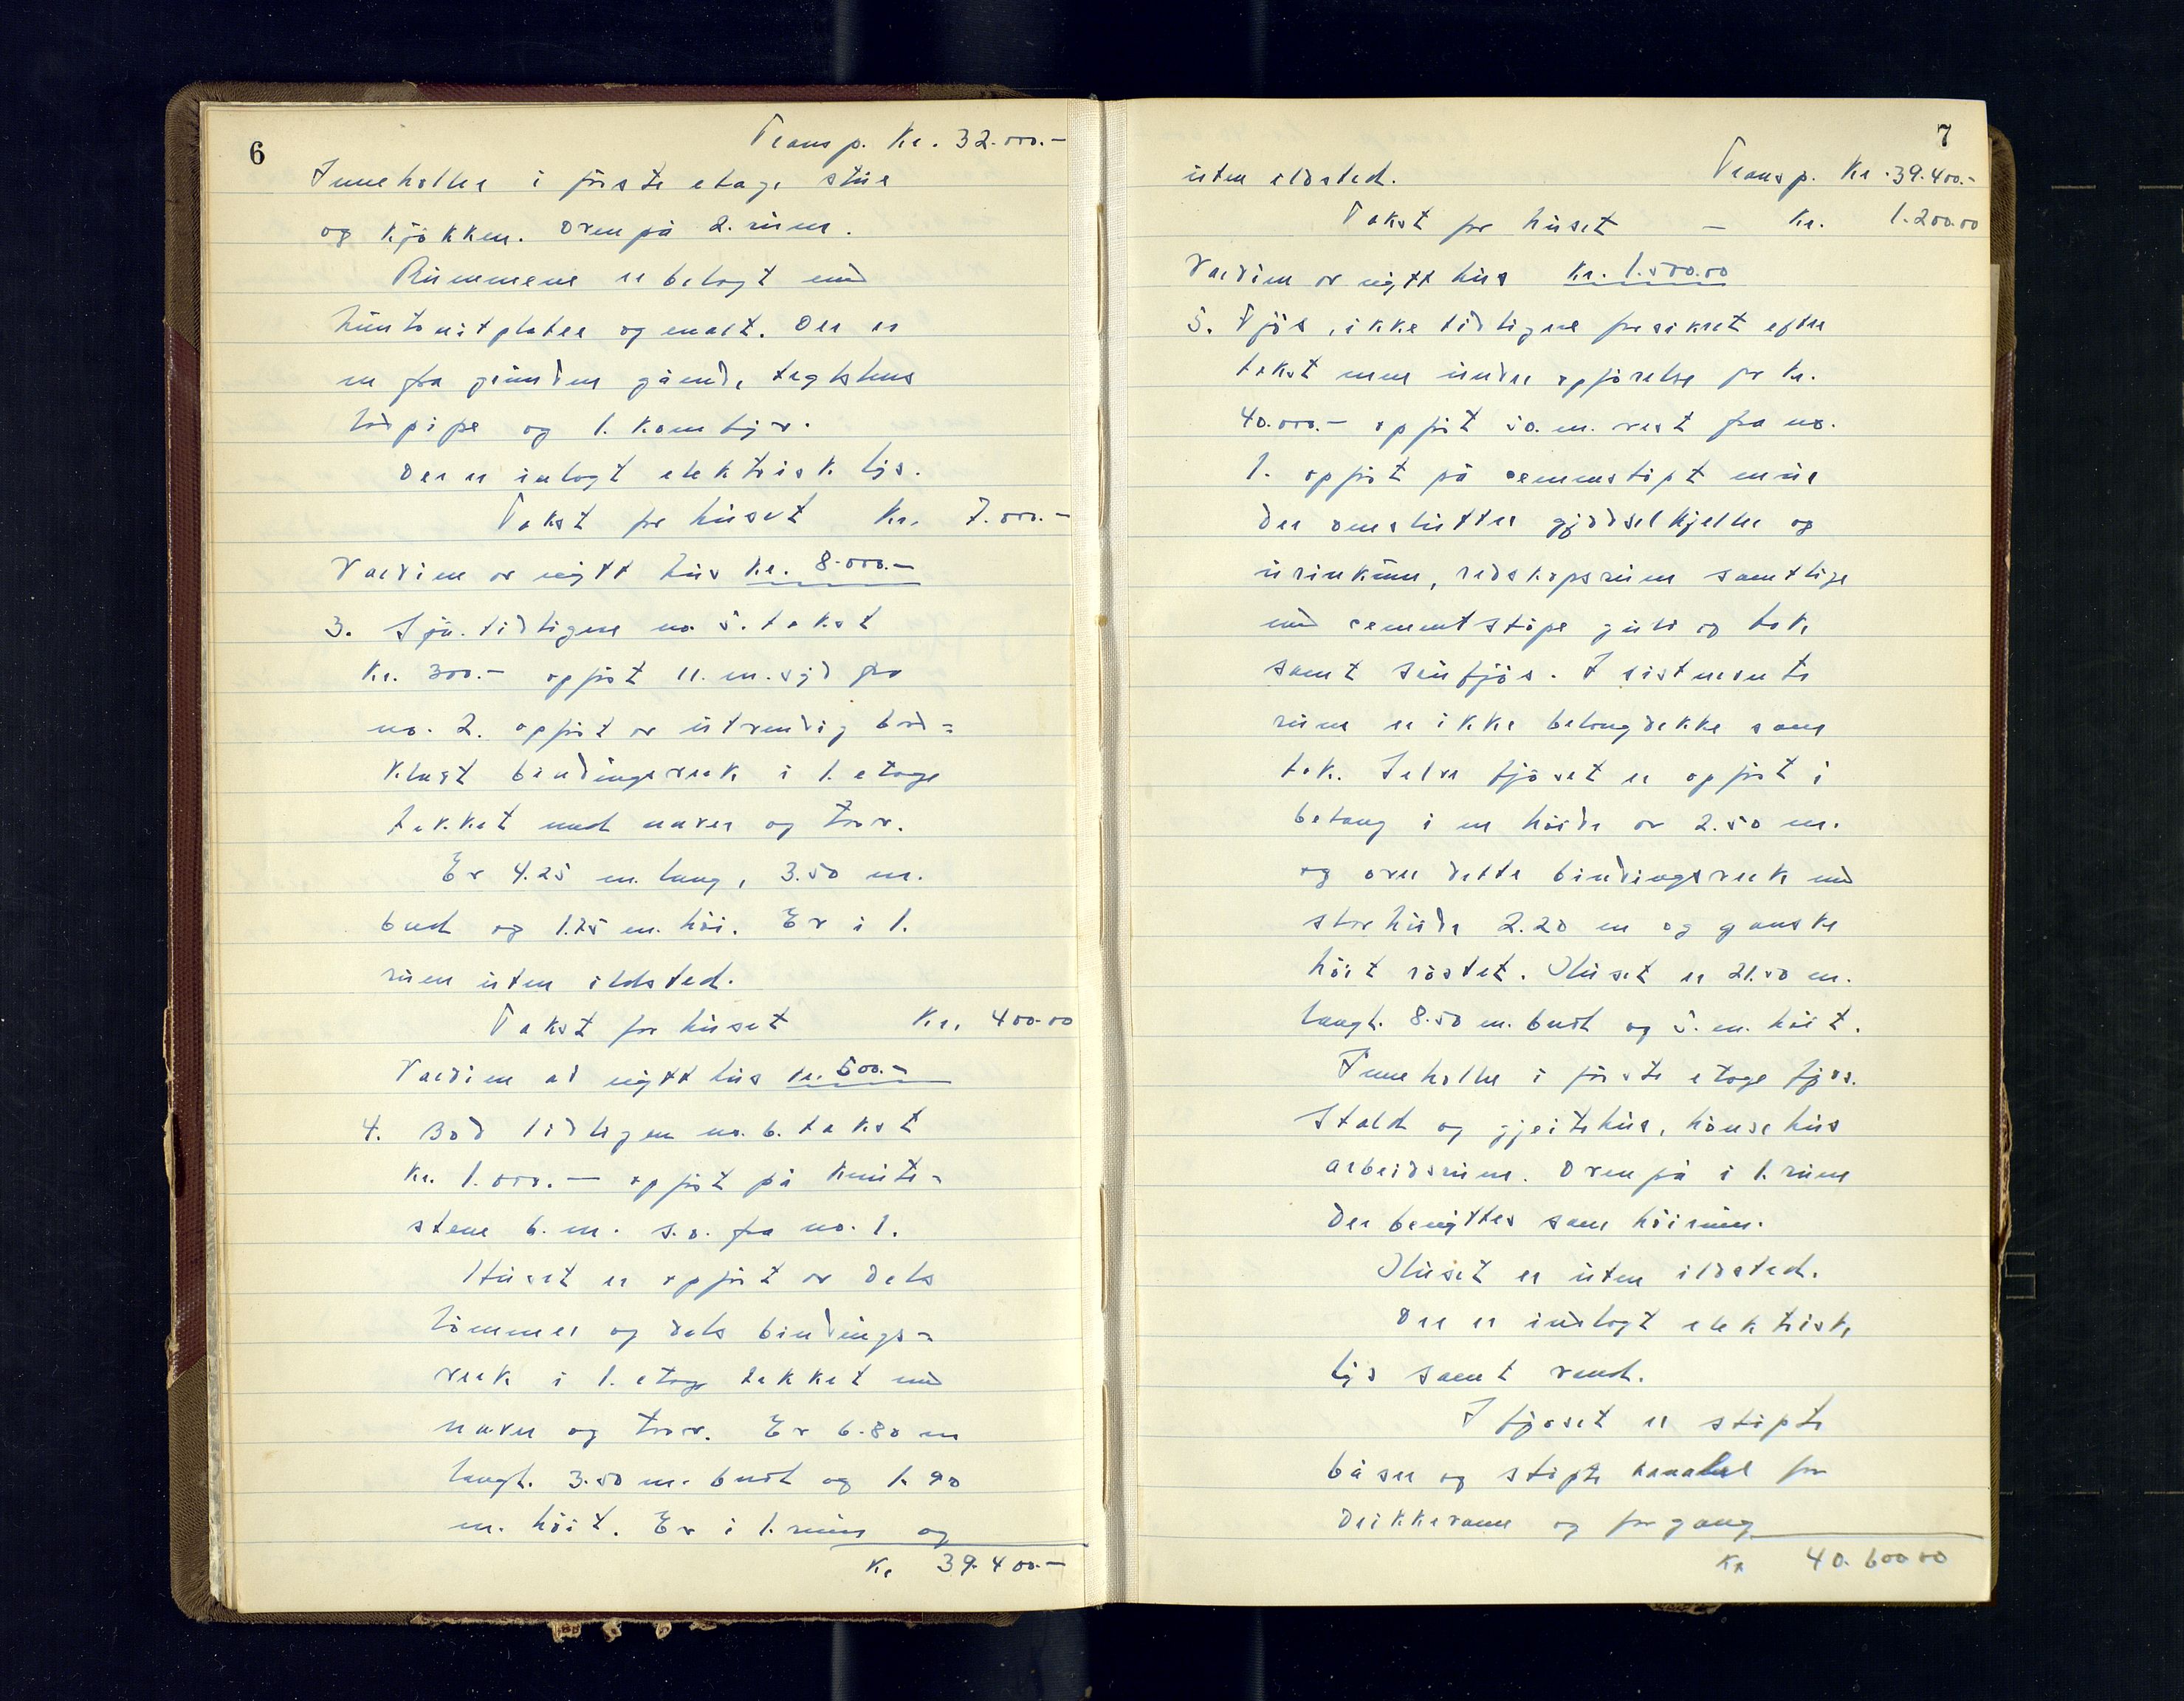 6
Transp. Kr. 32.000.-
Inneholler i förste etage stue
og kjökken. Ovenpå 2. rum.
Rummene er belagt med
huntonitplater og malt. Der er
en fra grunden gående teglstens
lödpipe og 1. komfyr.
Der er inlagt elektrisk lys.
Takst for huset Kr. 7.000.-
Værdien av nytt hus Kr. 8.000.-
3. Sjå. tidligere no. 5. takst
Kr. 300.- opfört 11. m. syd fra
no. 2. opfört av utvendig bord=
kledt bindingsverk i 1. etage
tekket med never og torv.
Er 4.25 m. lang, 3.50 m.
bred og 1.75 m. höi. Er i 1.
rum uten ildsted.
Takst for huset Kr. 400.00
Værdien av nytt hus kr. 500.-
4. Bod tidligere no. 6. takst
Kr. 1.000.- opfört på knute=
stene 6. m. s.ö. fra no. 1.
Huset er opfört av dels
tömmer og dels bindings=
verk i 1. etage tekket med
never og torv. Er 6.80 m
langt. 3.50 m. bredt og 1.90
m. höit. Er i 1. rum og
Kr 39.400.-
7
uten ildsted. Transp. Kr. 39.400.-
Takst for huset - Kr. 1.200.00
Værdien av nytt hus Kr. 1.500.00
5. Fjös, ikke tidligere forsikret efter
takst men under opförelse for kr.
40.000.- opfört 50. m. vest fra no.
1. opfört på cementstöpt mur
der omslutter gjödselkjeller og
urinkum, redskapsrum samtlige
med cementstöpe gulv og tak
samt saufjös. I sistnevnte
rum er ikke betongdekke som
tak. Selve fjöset er opfört i
betong i en höide av 2.50 m.
og over dette bindingsverk med
stor höide 2.20 m og ganske
höit röstet. Huset er 21.50 m.
langt. 8.50 m. bredt og 5. m. höit.
Inneholler i förste etage fjös.
Stald og gjeitehus, hönsehus
arbeidsrum. Ovenpå i 1. rum
der benyttes som höirum.
Huset er uten ildsted.
Der er indlagt elektrisk
lys samt vand.
I fjöset er stöpte
båser og stöpte kanaler for
drikkevann og forgang
Kr 40.600 00